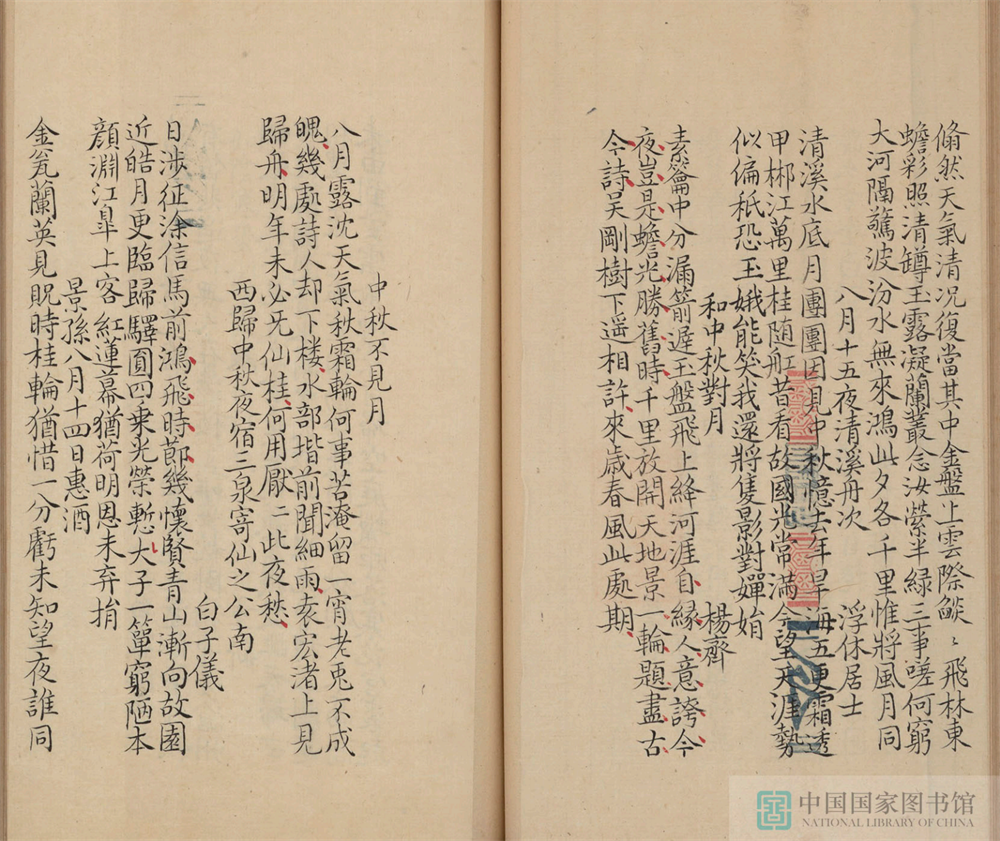 翛然天氣清况復當其中金盤上雲際燄〻飛林東
蟾彩照清罇玉露凝蘭叢念汝縈半緑三事嗟何窮
大河隔驚波汾水無來鴻此夕各千里惟將風月同
八月十五夜清溪舟次 浮休居士
清溪水底月團團因見中秋憶去年旱海五更霜透
甲郴江萬里桂随舡昔看故國光常滿今望天涯勢
似偏秪恐玉娥能笑我還將隻影對嬋娟
和中秋對月 楊齊
素籥中分漏箭遲玉盤飛上絳河涯自縁人意誇今
夜豈是蟾光勝舊時千里放開天地景一輪題盡古
今詩吴剛樹下遥相許來歲春風此處期
中秋不見月
八月露沈天氣秋霜輪何事苦淹留一宵老兎不成
魄幾處詩人却下楼水部堦前聞細雨袁宏渚上見
歸舟明年未必旡仙桂何用厭〻此夜愁
西歸中秋夜宿三泉寄仙之公南
白子儀
日涉征涂信馬前鴻飛時節幾懷賢青山漸向故園
近皓月更臨歸驛圓四乗光榮慙大子一簞窮陋本
顔淵江臯上客紅蓮幕猶荷明恩未弃捐
景孫八月十四日惠酒
金瓮蘭英見貺時桂輪猶惜一分虧未知望夜誰同
中国国家图书馆
NATIONAL LIBRARY OF CHINA